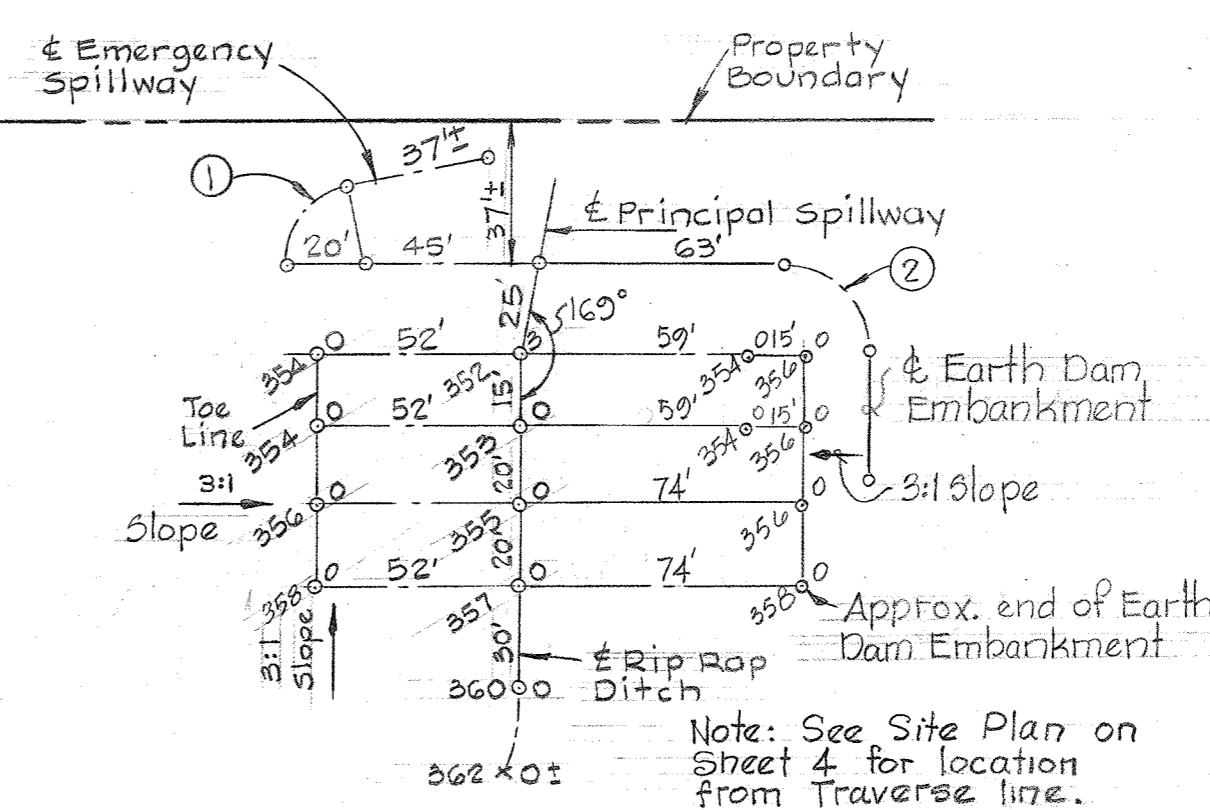 ℄ Emergency
Spillway
Property
Boundary
37'±
1
37'±
℄ Principal Spillway
20'
45'
63'
2
25'
169°
0
52'
3
59'
0
15'
0
354
352
354
356
15'
℄ Earth Dam
Embankment
Toe
Line
0
52'
0
59'
0
15'
0
354
353
354
356
20'
3:1
Slope
0
0
74'
0
3:1 Slope
356
355
356
20'
0
52'
0
74'
0
358
357
358
Approx. end of Earth
Dam Embankment
3:1
Slope
30'
℄ Rip Rap
Ditch
360
0
362 × 0±
Note: See Site Plan on
Sheet 4 for location
from Traverse line.